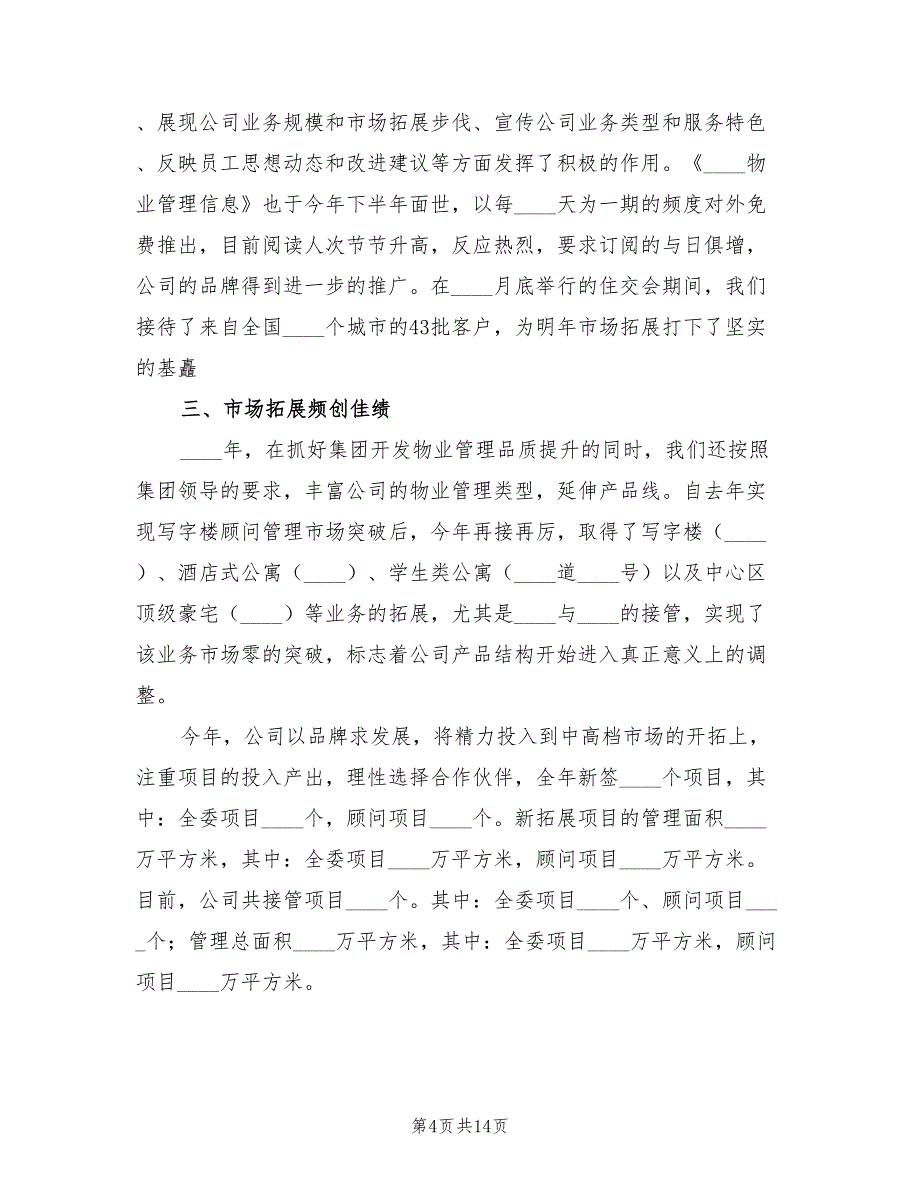 、展现公司业务规模和市场拓展步伐、宣传公司业务类型和服务特色
、反映员工思想动态和改进建议等方面发挥了积极的作用。《____物
业管理信息》也于今年下半年面世，以每____天为一期的频度对外免
费推出，目前阅读人次节节升高，反应热烈，要求订阅的与日俱增，
公司的品牌得到进一步的推广。在____月底举行的住交会期间，我们
接待了来自全国____个城市的43批客户，为明年市场拓展打下了坚实
的基矗
三、市场拓展频创佳绩
____年，在抓好集团开发物业管理品质提升的同时，我们还按照
集团领导的要求，丰富公司的物业管理类型，延伸产品线。自去年实
现写字楼顾问管理市场突破后，今年再接再厉，取得了写字楼（____
）、酒店式公寓（____）、学生类公寓（____道____号）以及中心区
顶级豪宅（____）等业务的拓展，尤其是____与____的接管，实现了
该业务市场零的突破，标志着公司产品结构开始进入真正意义上的调
整。
今年，公司以品牌求发展，将精力投入到中高档市场的开拓上，
注重项目的投入产出，理性选择合作伙伴，全年新签____个项目，其
中：全委项目____个，顾问项目____个。新拓展项目的管理面积____
万平方米，其中：全委项目____万平方米，顾问项目____万平方米。
目前，公司共接管项目____个。其中：全委项目____个、顾问项目___
_个；管理总面积____万平方米，其中：全委项目____万平方米，顾问
项目____万平方米。
第4页共14页